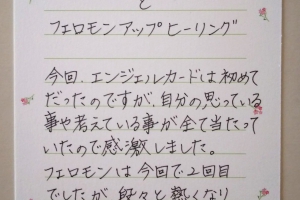 と
フェロモンアップヒーリング
今回、エンジェルカードは初めて
だったのですが、自分の思っている
事や考えている事が全て当たって
いたので感激しました。
フェロモンは今回で2回目
でしたが、段々と熱くなり